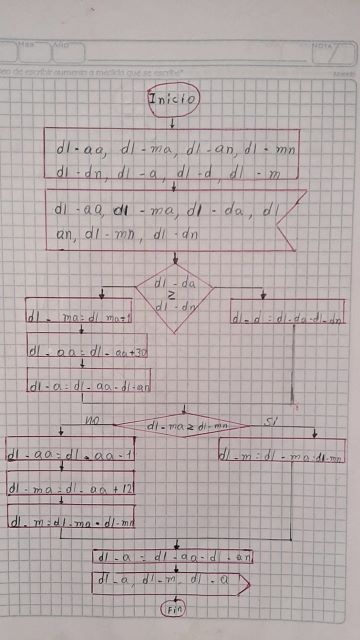 AÑO
NOTA
Inicio
dl-aa, dl-ma, dl-an, dl-mn
dl-dn, dl-a, dl-d, dl-m
dl-aa, dl-ma, dl-da, dl
an, dl-mn, dl-dn
dl-da
≥
dl-dn
dl- ma=dl-ma+1
dl-d=dl-da-dl-dn
dl-aa=dl-aa+30
dl-a=dl-aa-dl-an
no
dl-ma≥dl-mn
si
dl-aa=dl-aa-1
dl-m=dl-ma-dl-mn
dl-ma=dl-aa+12
dl-m=dl-ma-dl-mn
dl-a=dl-aa-dl-an
dl-a, dl-m, dl-a
Fin